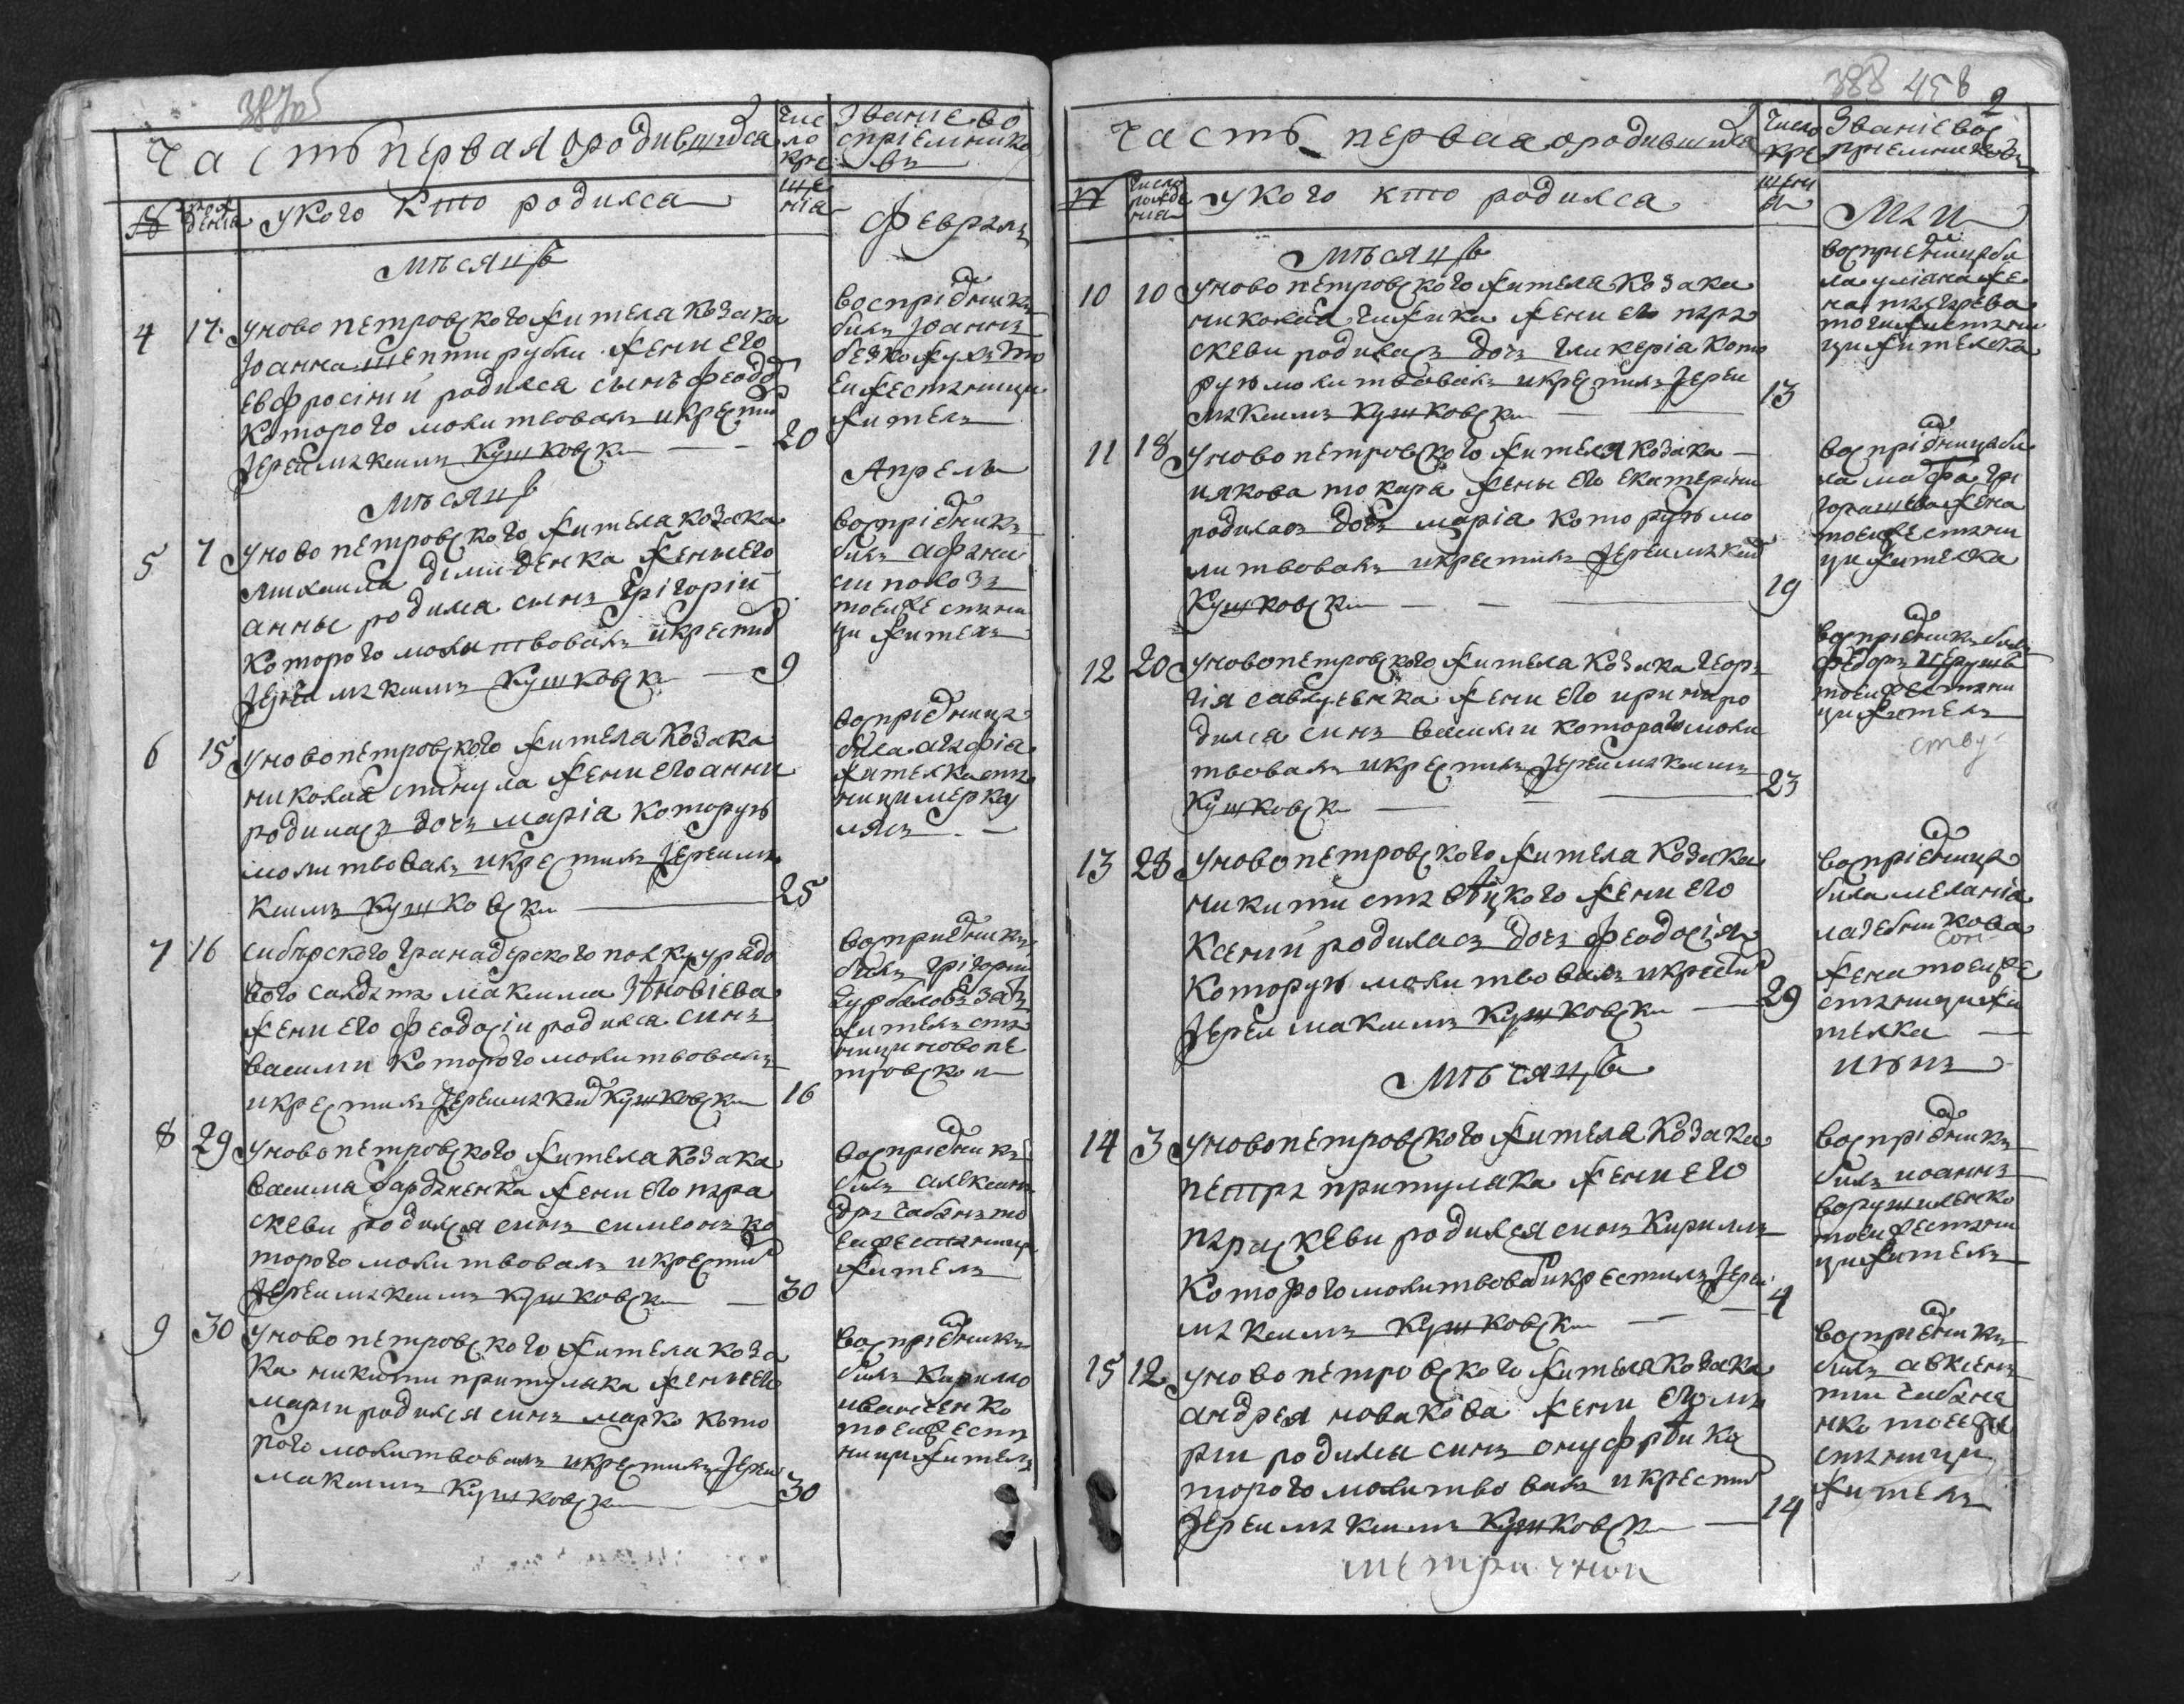 Часть первая ородившихся
Число крещения
Звание восприемниковъ
№
рождения
Укого кто родился
Мѣсяцъ
Февраль
4 17 Уново петровского жителя козака
Иоанна шептирубли жени его
Евфросиний родился сынъ Феодоръ
Которого молитвовалъ икрестилъ
Иерей максимъ Кушковски 20
восприемникъ
билъ Иоаннъ
то
ей же станици
житель
Мѣсяцъ
Апрель
5 7 Уново петровского жителя козака
михаила демиденка жены его
анны родился сынъ Григорий
Которого молитвовалъ икрестилъ
Иерей максимъ Кушковски 9
восприемникъ
билъ афана
сий полозъ
тоей же стани
ци житель
6 15 Уновопетровского жителя козака
николая стингула жени его анни
родилась дочъ мариа Которую
молитвовалъ икрестилъ Иерей ма
ксимъ Кушковски 25
восприемница
била агафиа
жителка ста
ници мерку
лямъ
7 16 сибѣрского гранадерского полку урядо
вого салдата максима Зѣновиева
жени его феодосии родился синъ
василий Которого молитвовалъ
икрестилъ Иерей максимъ Кушковски 16
восприемникъ
билъ григорий
житель ста
ници новопе
тровской
8 29 Уновопетровского жителя козака
василя Гарданенка жени его пара
скеви родился синъ симеонъ ко
торого молитвовалъ икрестилъ
Иерей максимъ Кушковски 30
восприемникъ
билъ алексан
дръ чабанъ то
ей же станици
житель
9 30 Уново петровского жителя коза
ка никити притулака жены его
марии родился синъ марко кото
рого молитвовалъ икрестилъ Иерей
максимъ Кушковски 30
восприемникъ
билъ Кирило
иванченко
тоей же ста
ници житель
388 458 2
Часть первая ородившихся
Число крещения
Звание восприемниковъ
№
Число рождения
Укого кто родился
Мѣсяцъ
Май
10 10 Уново петровского жителя козака
николая чижика жени его пара
скеви родилась дочъ гликериа кото
рую молитвовалъ икрестилъ Иерей
максимъ Кушковски 13
восприемница би
ла улиана же
на
тоей же стани
ци жителька
11 18 Уново петровского жителя козака
иякова токара жены его екатерини
родилась дочъ мариа которую мо
литвовалъ икрестилъ Иерей максимъ
Кушковски 19
восприемница би
ла
жена
тоей же стани
ци жителка
12 20 Уновопетровского жителя козака геор
гия савлученка жени его ирини ро
дился синъ василий которого моли
твовалъ икрестилъ Иерей максимъ
Кушковски 23
восприемникъ билъ
федоръ
тоей же стани
ци житель
13 28 Уновопетровского жителя козака
никити стаѣцкого жени его
Ксений родилась дочъ феодосия
Которую молитвовалъ икрестилъ
Иерей максимъ Кушковски 29
восприемница
била меланиа
лагебникова
жена тоей же
станици жи
телка
Мѣсяцъ
июнь
14 3 Уновопетровского жителя козака
петра притулака жени его
параскеви родился синъ Кириллъ
Которого молитвовалъ икрестилъ Иерей
максимъ Кушковски 4
восприемникъ
билъ иоаннъ
ворушиленко
тоей же стани
ци житель
15 12 Уново петровского жителя козака
андрея новакова жени его ма
рии родился синъ онуфрѣи ко
торого молитвовалъ икрестилъ
Иерей максимъ Кушковски 14
восприемникъ
билъ авксен
тий чабане
нко тоей же
станици
житель
метричной